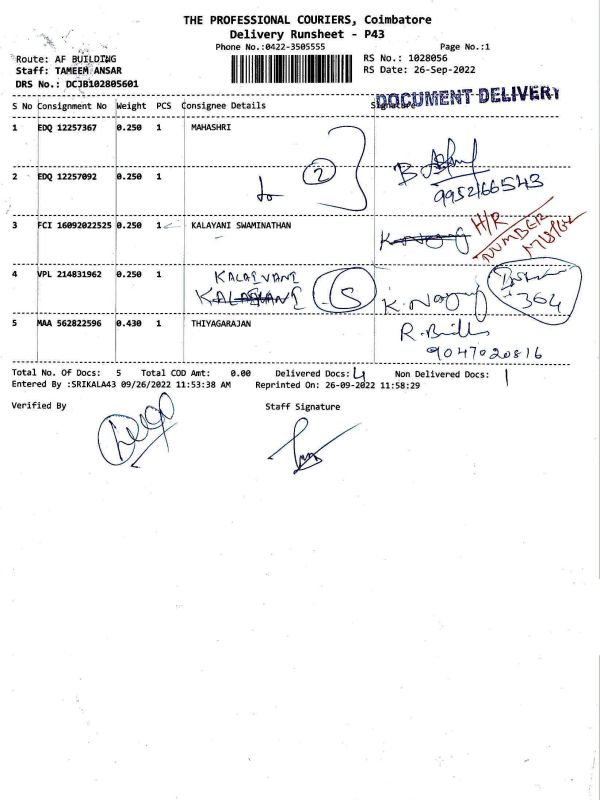 THE PROFESSIONAL COURIERS, Coimbatore
Delivery Runsheet - P43
Phone No.:0422-3505555 Page No.:1
Route: AF BUILDING RS No.: 1028056
Staff: TAMEEM ANSAR RS Date: 26-Sep-2022
DRS No.: DCJB102805601
DOCUMENT DELIVERY
S No Consignment No Weight PCS Consignee Details Signature
1 EDQ 12257367 0.250 1 MAHASHRI
2 EDQ 12257092 0.250 1
2
9952166543
3 FCI 16092022525 0.250 1 KALAYANI SWAMINATHAN
H/R
NUMBER
4 VPL 214831962 0.250 1 KALAIVANI
5
364
5 MAA 562822596 0.430 1 THIYAGARAJAN
9047020816
Total No. Of Docs: 5 Total COD Amt: 0.00 Delivered Docs: 4 Non Delivered Docs: 1
Entered By :SRIKALA43 09/26/2022 11:53:38 AM Reprinted On: 26-09-2022 11:58:29
Verified By Staff Signature